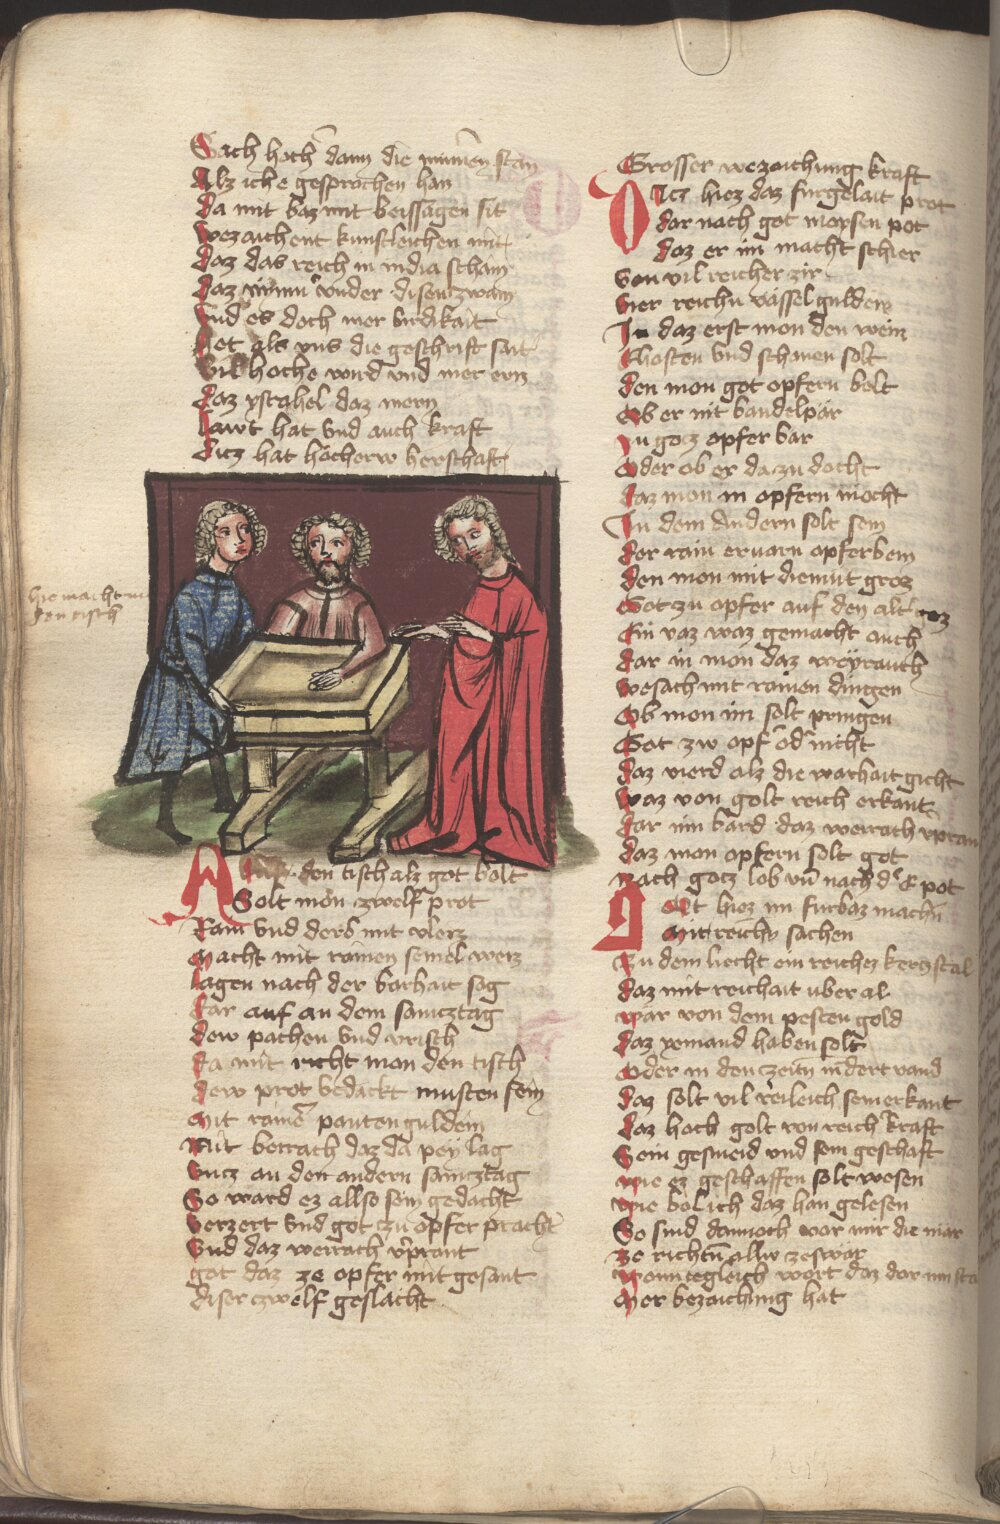 Sach hoch dann die minnen stan
Alz iche gesprochen han
Da mit baz mit beissagen sit
Bezaichent kunstleichen mit
Daz das reich in india scham
Daz minn vnder disen zwain
Vnd es doch mer wirdikait
Het als vns die geschrift sait
Vil hoche wird vnd mer ern
Daz ysrahel daz mern
Lawt hat vnd auch kraft
Dicz hat höcherw herschaft
hie macht m
den tisch
Auf den tisch alz got bolt
Solt mon zwelf prot
Rain vnd derb mit vleiz
Macht mit rainen semel weiz
Lagen nach der barhait sag
Dar auf an dem samcztag
Dew pachen vnd vrisch
Da mit richt man den tisch
Dew prot bedackt musten sein
Mit raine pauten guldein
Mit beirach daz da pey lag
Vncz an den andern samcztag
So ward ez allso sein gedacht
Verzert vnd got zu opfer pracht
Vnd daz weirach vprant
Got daz ze opfer mit gesant
Diser zwelf geslächt
Grosser wezaichung kraft
Dicz hiez daz furgelait prot
Dar nach got moysen pot
Daz er im macht schier
Von vil reicher zir
Vier reichu vässel guldein
In daz erst mon den wein
Chosten vnd schawen solt
Den mon got opfern bolt
Ob er nit bandelpär
Zu gocz opfer bar
Oder ob er da zu docht
Daz mon in opfern mocht
In dem andern solt sein
Der rain ervarn opferbein
Den mon mit diemut groz
Got zu opfer auf den alt goz
Ein vaz waz gemacht auch
Dar in mon daz weyrauch
Besach mit rainen dingen
Ob mon im solt pringen
Got zw opf od nicht
Daz vierd alz die warhait gicht
Waz von golt reich erkant
Dar inn bard daz weirach vpran
Daz mon opfern solt got
Nach gocz lob vn nach d e pot
Got hiez im furbaz machn
Mit reichn sachen
Zu dem liecht ein reichez kerczstal
Daz mit reichait uber al
War von dem pesten gold
Daz yemand haben solt
Oder in den zeitn indert vand
Daz solt vil reileich sein erkant
Daz hoch golt von reich kraft
Sein gesmeid vnd sein geschaft
Wie ez geschaffen solt wesen
Wie bol ich daz han gelesen
So sind dannoch war mir die mar
Ze richtn allw ze swär
Wann iegleich wort daz dar inn sta
Mer bezaichung hat